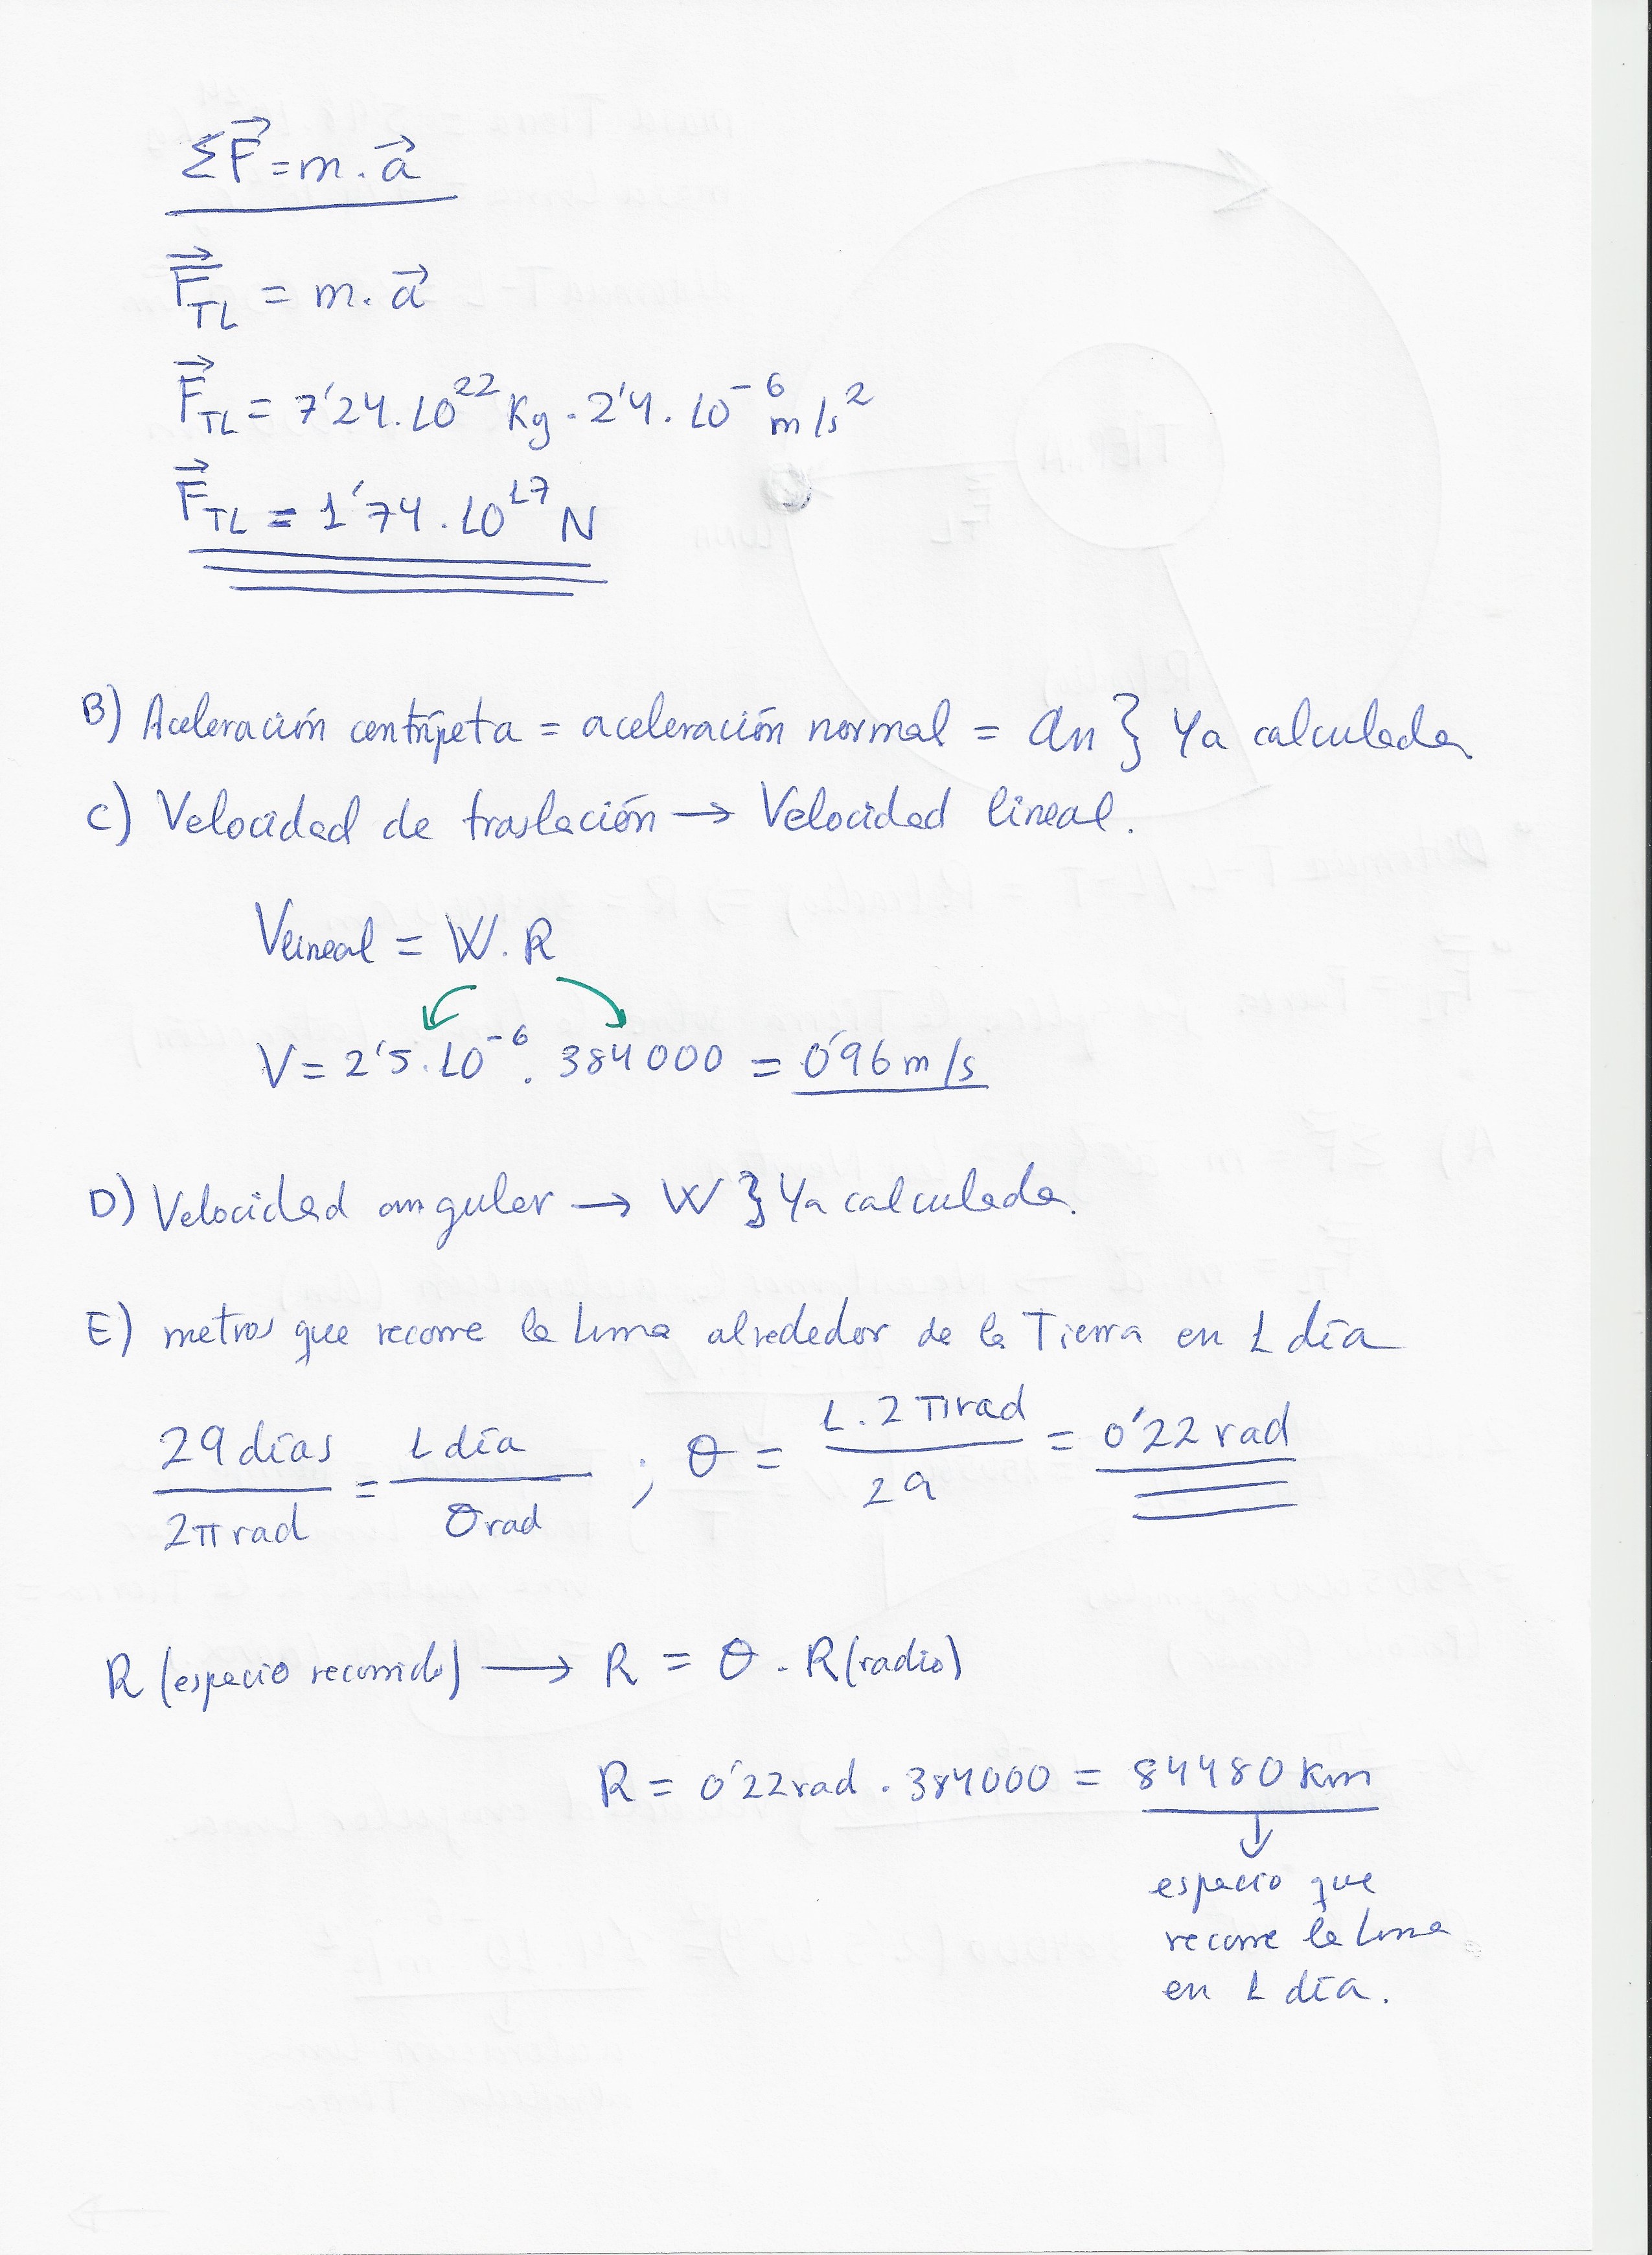 ΣF⃗ = m . a⃗
F⃗TL = m . a⃗
F⃗TL = 7'24 . 10^22 Kg . 2'4 . 10^-6 m/s^2
F⃗TL = 1'74 . 10^17 N
B) Aceleración centrípeta = aceleración normal = an } Ya calculada
C) Velocidad de traslación → Velocidad lineal.
Vlineal = W . R
V = 2'5 . 10^-6 . 384000 = 0'96 m/s
D) Velocidad angular → W } Ya calculada.
E) metros que recorre la Luna alrededor de la Tierra en 1 día
29 días / 2π rad = 1 día / θ rad ; θ = 1 . 2π rad / 29 = 0'22 rad
R (espacio recorrido) → R = θ . R (radio)
R = 0'22 rad . 384000 = 84480 Km
↓
espacio que
recorre la Luna
en 1 día.